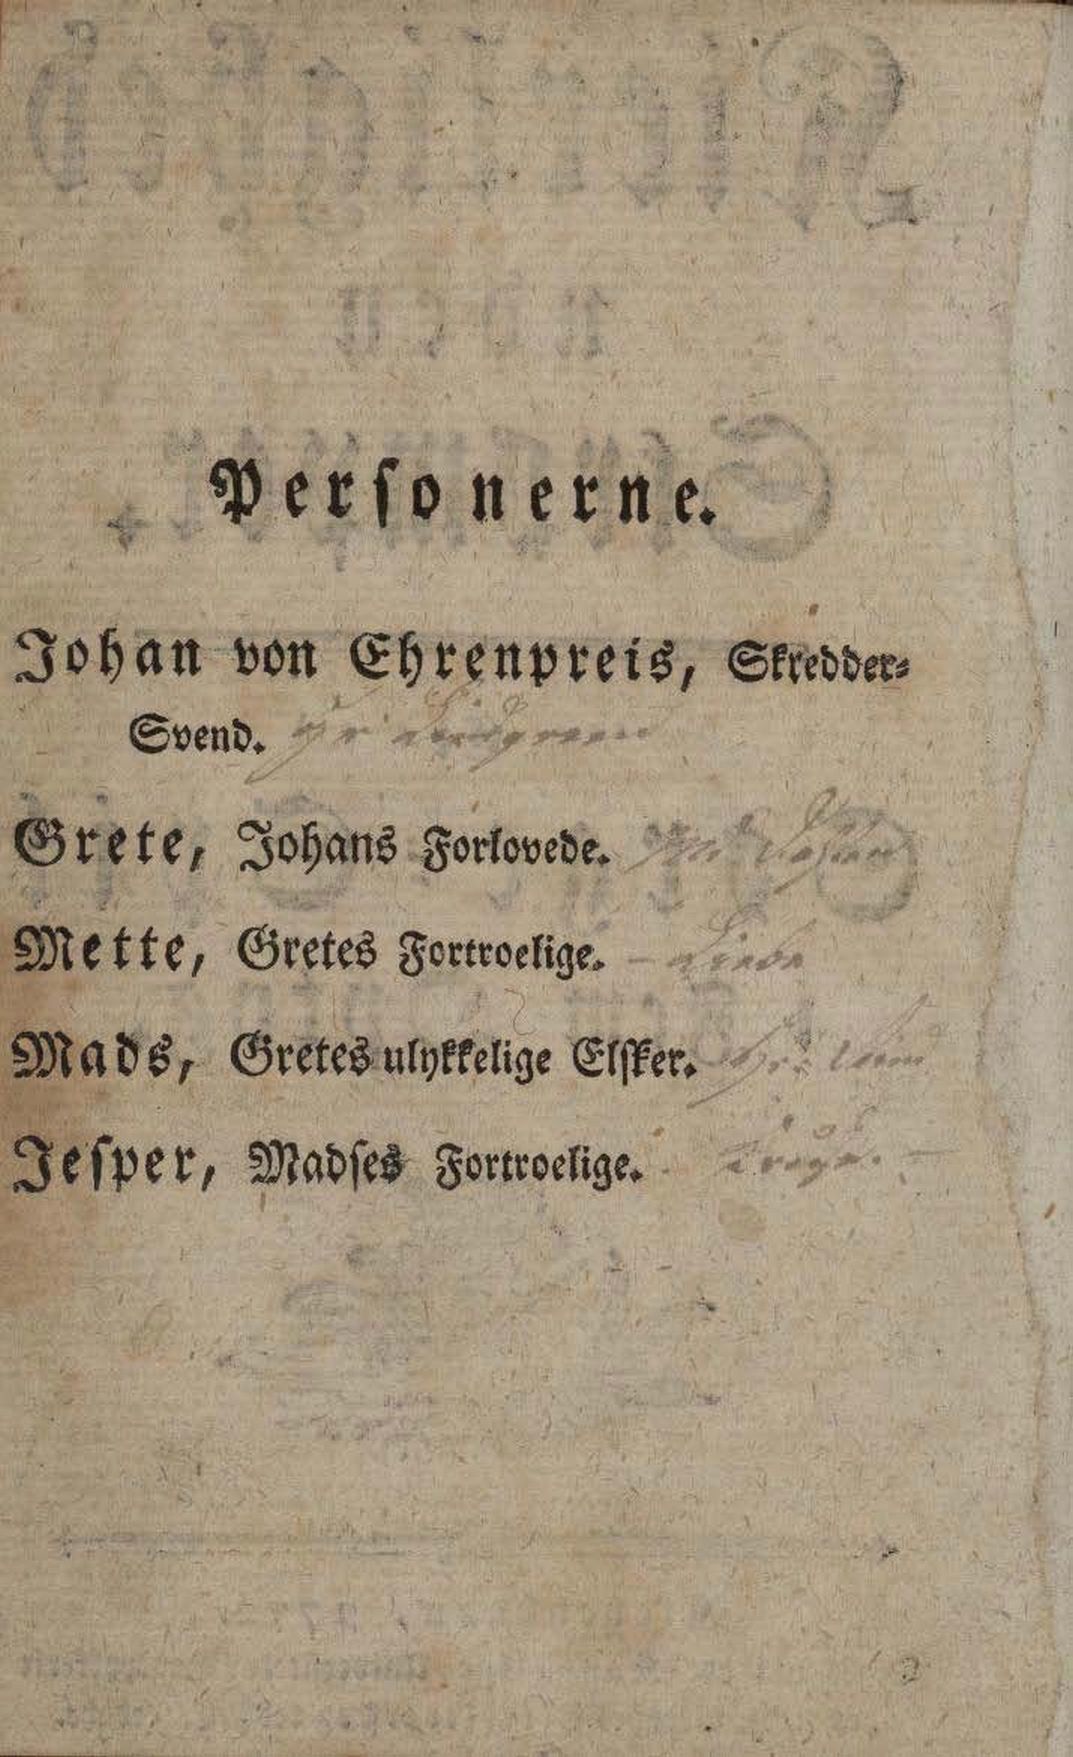 Personerne.
Johan von Ehrenpreis, Skredder-
Svend.
Grete, Johans Forlovede.
Mette, Gretes Fortroelige.
Mads, Gretes ulykkelige Elsker.
Jesper, Madses Fortroelige.